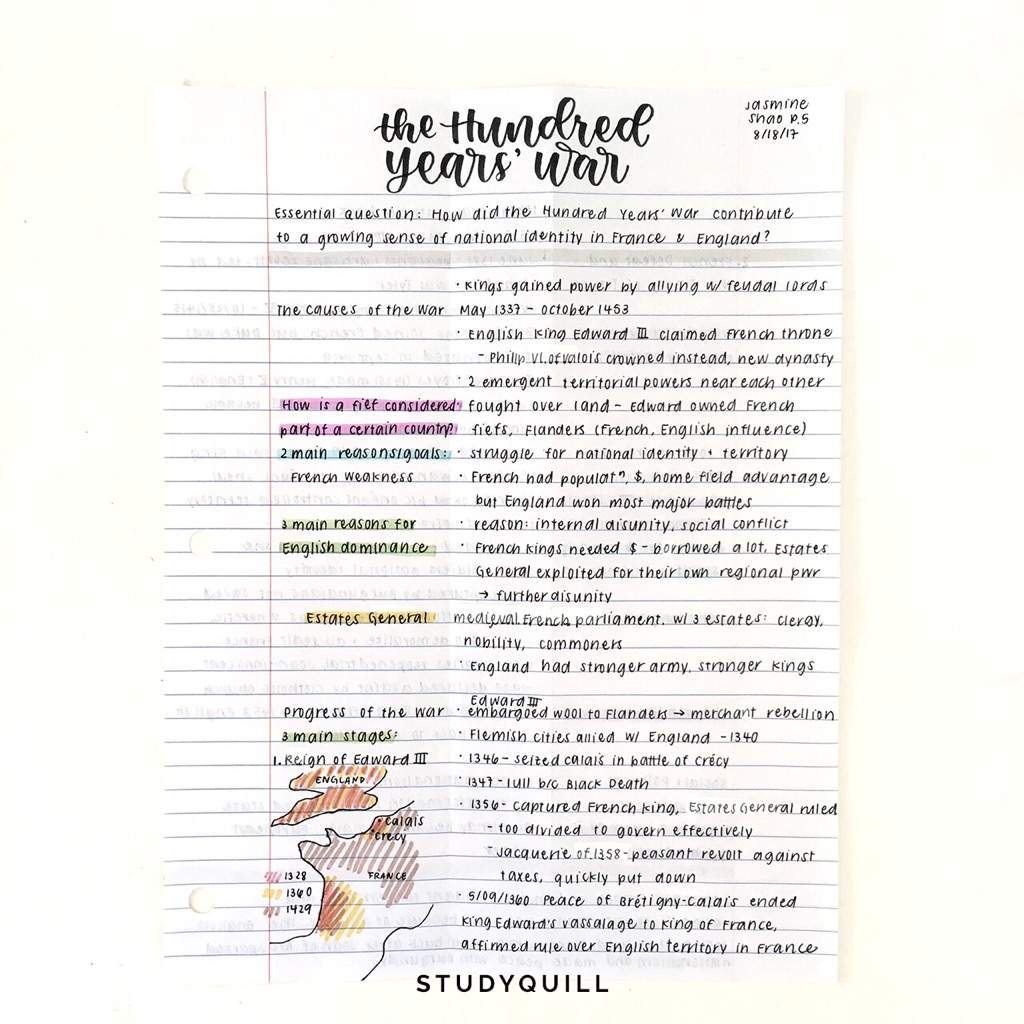 the Hundred
Years' War
Jasmine
Shao P.5
8/18/17
Essential question: How did the Hundred Years' War contribute
to a growing sense of national identity in France & England?
• Kings gained power by allying w/ feudal lords
The causes of the War May 1337 - October 1453
• English King Edward III claimed French throne
- Philip VI of Valois crowned instead, new dynasty
• 2 emergent territorial powers near each other
How is a fief considered • fought over land - Edward owned French
part of a certain country? fiefs, Flanders (French, English influence)
2 main reasons/goals: • struggle for national identity + territory
French weakness • French had populatⁿ, $, home field advantage
but England won most major battles
3 main reasons for • reason: internal disunity, social conflict
English dominance • French kings needed $ - borrowed a lot, Estates
General exploited for their own regional pwr
→ further disunity
Estates General medieval French parliament, w/ 3 estates: clergy,
nobility, commoners
• England had stronger army, stronger kings
Edward III
Progress of the War • embargoed wool to Flanders → merchant rebellion
3 main stages: • Flemish cities allied w/ England - 1340
1. Reign of Edward III • 1346 - seized Calais in battle of Crécy
ENGLAND • 1347 - lull b/c Black Death
• 1356 - captured French king, Estates General ruled
• Calais
- too divided to govern effectively
• Crécy
- Jacquerie of 1358 - peasant revolt against
1328 FRANCE taxes, quickly put down
1360 • 5/09/1360 Peace of Brétigny-Calais ended
1429
King Edward's vassalage to King of France,
affirmed rule over English territory in France
STUDYQUILL